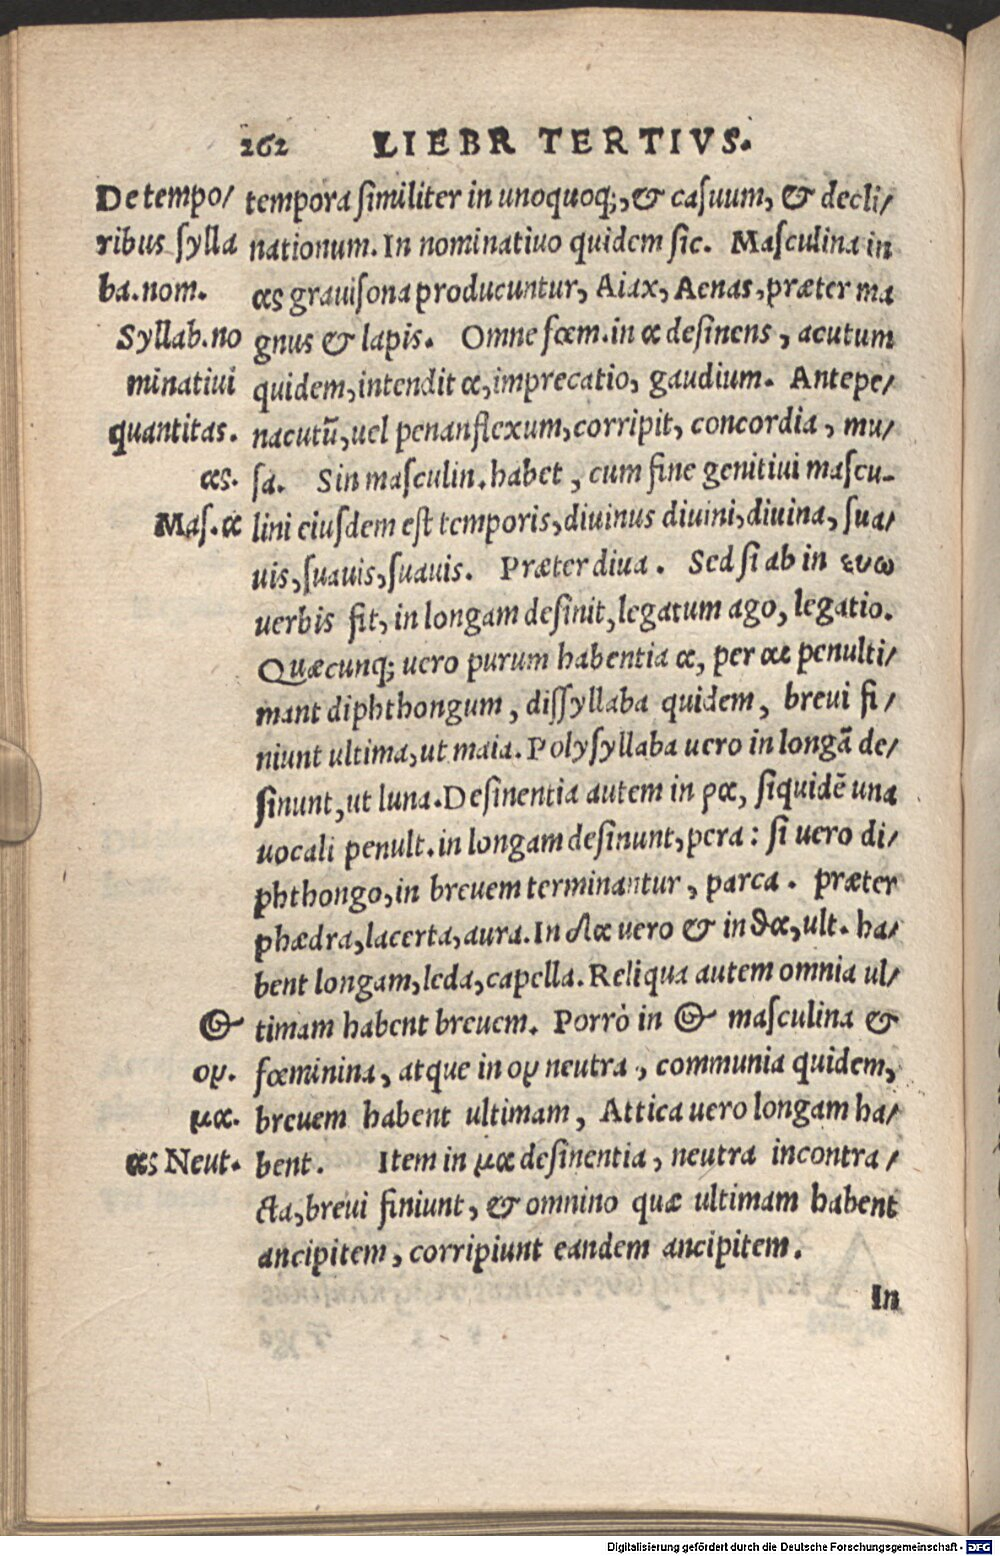 262 LIEBR TERTIVS.
De tempo/
ribus sylla
ba. nom.
Syllab. no
minatiui
quantitas.
ας.
Mas. α
ος
ον.
μα.
ας Neut.
tempora ſimiliter in unoquoq;, & caſuum, & decli/
nationum. In nominatiuo quidem ſic. Maſculina in
ας grauiſona producuntur, Aiax, Aenas, præter ma
gnus & lapis. Omne fœm. in α deſinens, acutum
quidem, intendit α, imprecatio, gaudium. Antepe/
nacutũ, uel penanflexum, corripit, concordia, mu/
ſa. Sin maſculin. habet, cum fine genitiui maſcu-
lini eiuſdem eſt temporis, diuinus diuini, diuina, ſua/
uis, ſuauis, ſuauis. Præter diua. Sed ſi ab in ευω
uerbis fit, in longam deſinit, legatum ago, legatio.
Quæcunq; uero purum habentia α, per αι penulti/
mant diphthongum, diſſyllaba quidem, breui fi/
niunt ultima, ut maia. Polyſyllaba uero in longã de/
ſinunt, ut luna. Deſinentia autem in ρα, ſiquidẽ una
uocali penult. in longam deſinunt, pera: ſi uero di/
phthongo, in breuem terminantur, parca. præter
phædra, lacerta, aura. In δα uero & in θα, ult. ha/
bent longam, leda, capella. Reliqua autem omnia ul/
timam habent breuem. Porrò in ος maſculina &
fœminina, atque in ον neutra, communia quidem,
breuem habent ultimam, Attica uero longam ha/
bent. Item in μα deſinentia, neutra incontra/
cta, breui finiunt, & omnino quæ ultimam habent
ancipitem, corripiunt eandem ancipitem.
In
Digitalisierung gefördert durch die Deutsche Forschungsgemeinschaft - DFG